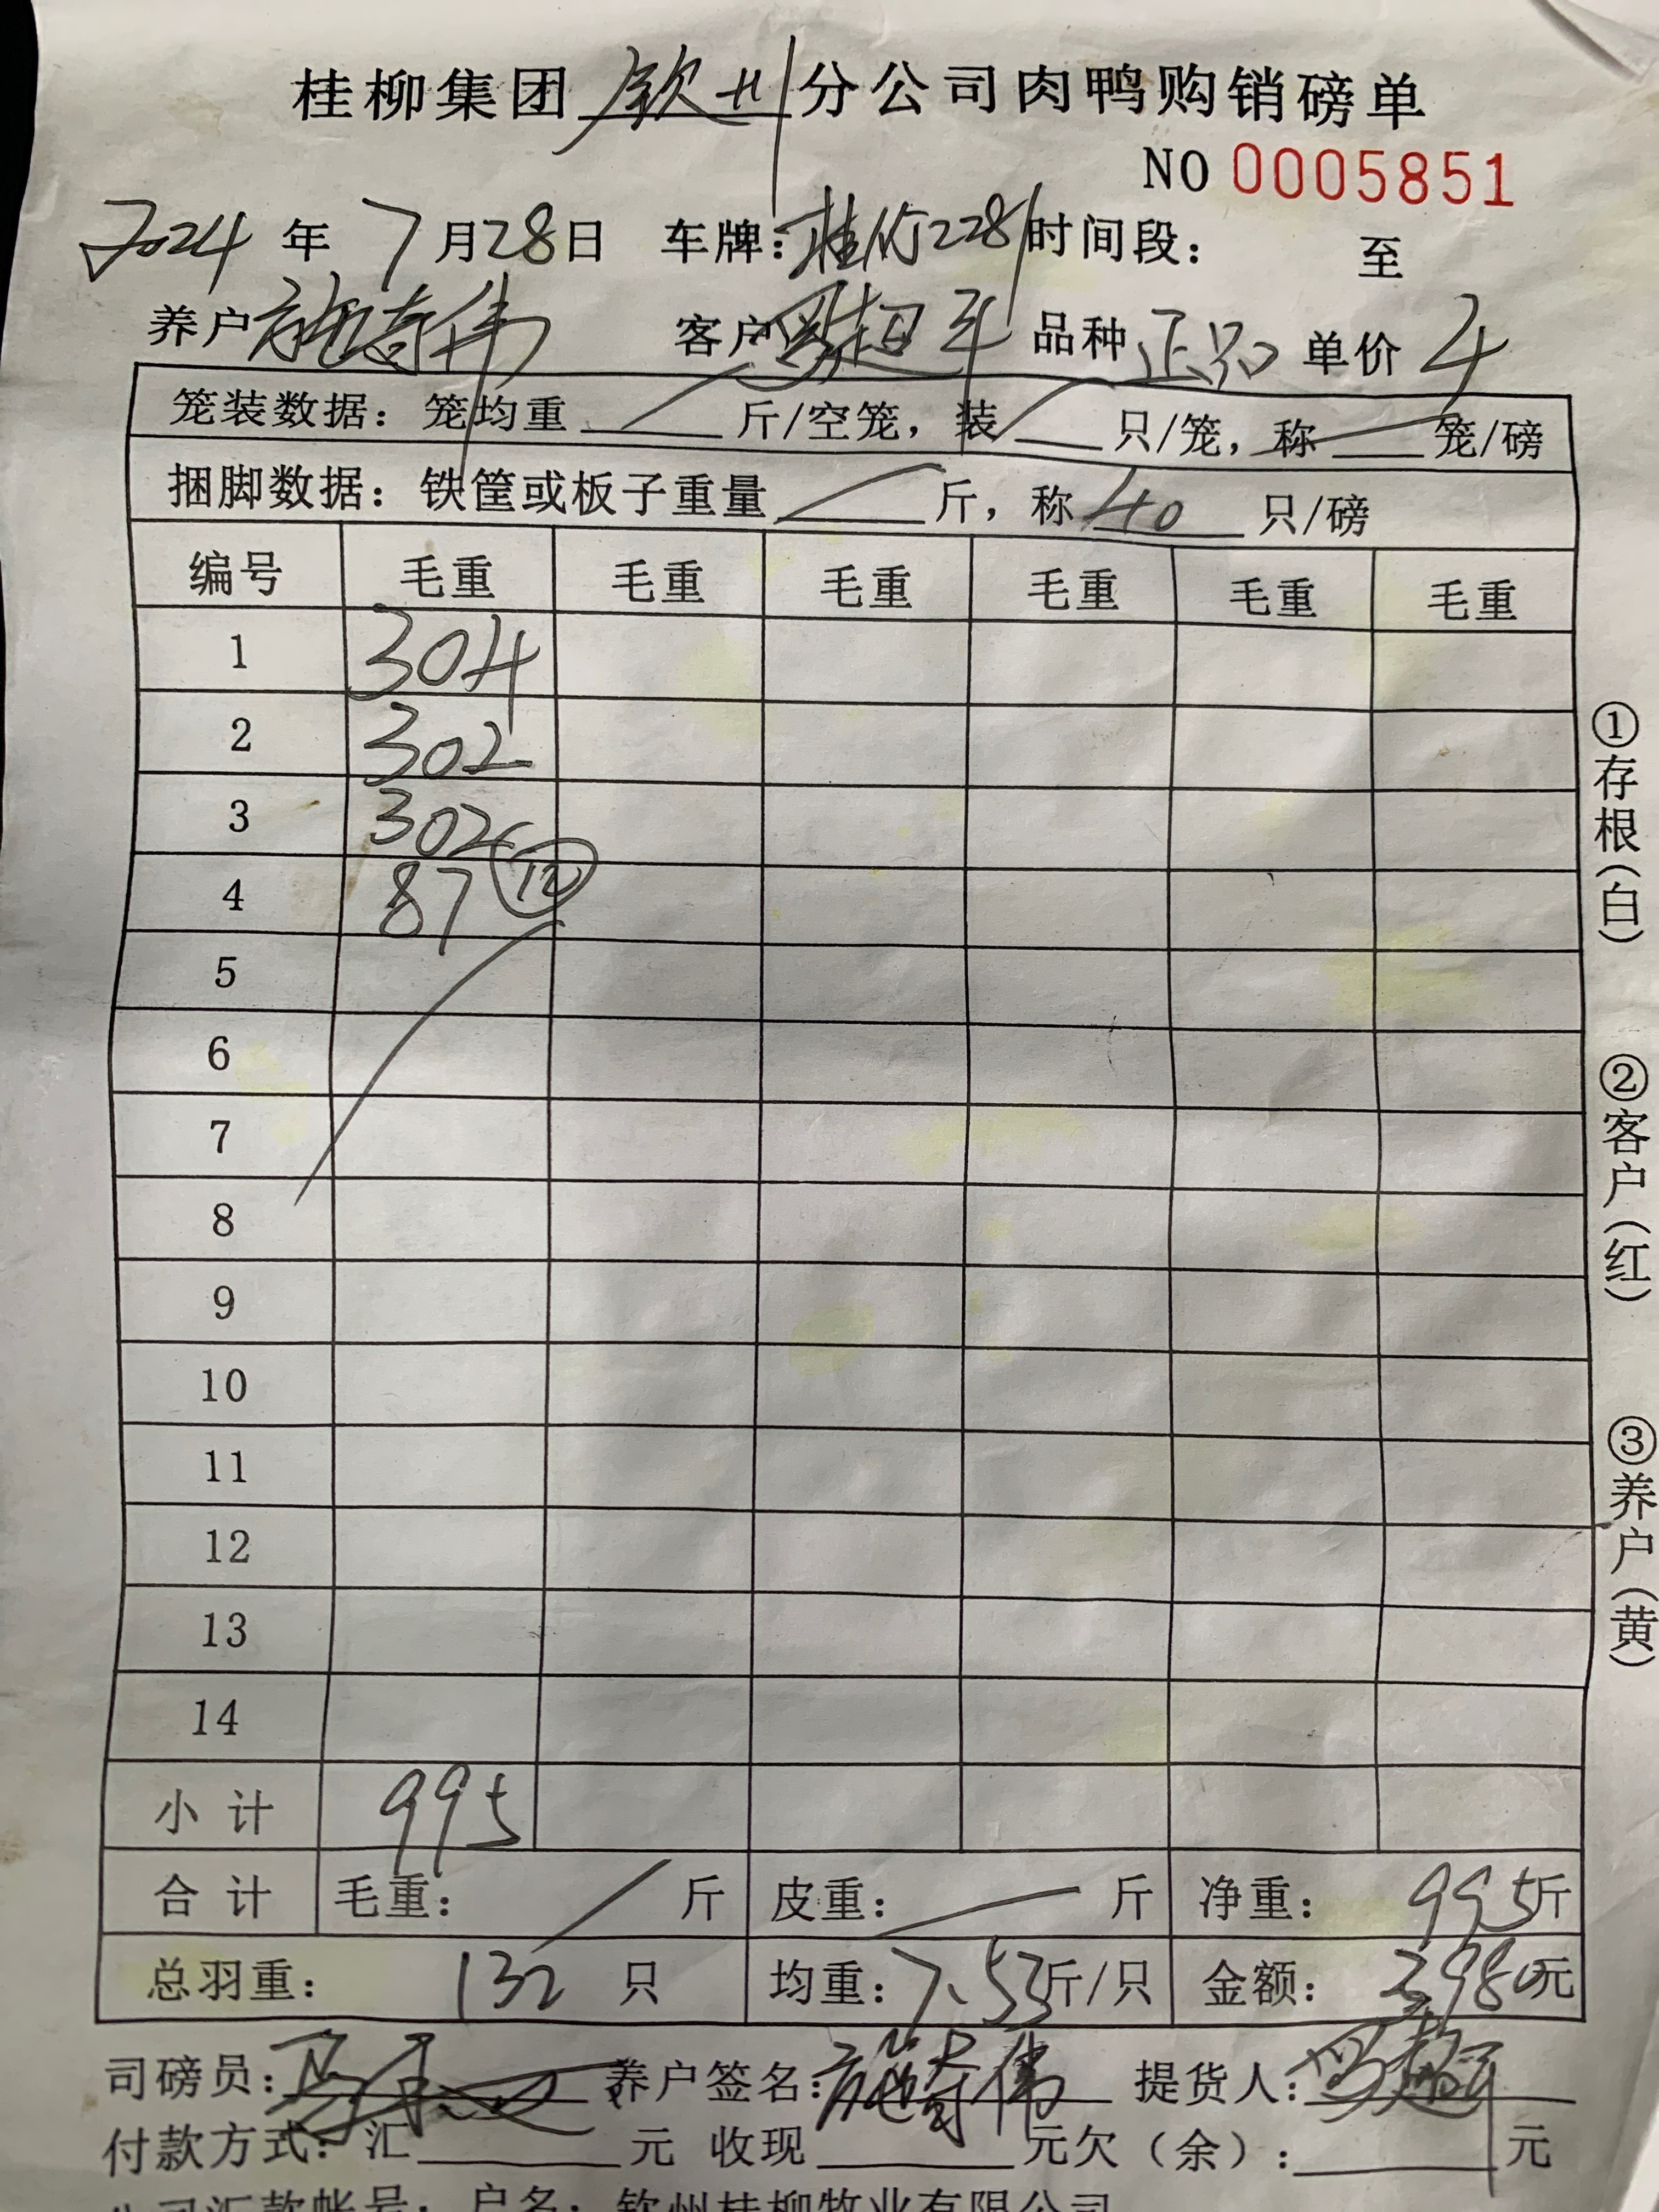 桂柳集团钦州分公司肉鸭购销磅单
NO 0005851
2024年7月28日 车牌：桂 2281 时间段： 至
养户施奇伟 客户罗超平 品种正品 单价4
笼装数据：笼均重 斤/空笼，装 只/笼，称 笼/磅
捆脚数据：铁筐或板子重量 斤，称40只/磅
编号 毛重 毛重 毛重 毛重 毛重 毛重
1 304
2 302
3 302
4 87 ⑫
5
6
7
8
9
10
11
12
13
14
小计 995
合计 毛重： 斤 皮重： 斤 净重：995斤
总羽重：132只 均重：7.53斤/只 金额：3980元
司磅员： 养户签名：施奇伟 提货人：罗超平
付款方式：汇 元 收现 元欠（余）： 元
公司汇款帐号：户名：钦州桂柳牧业有限公司
①存根（白）
②客户（红）
③养户（黄）